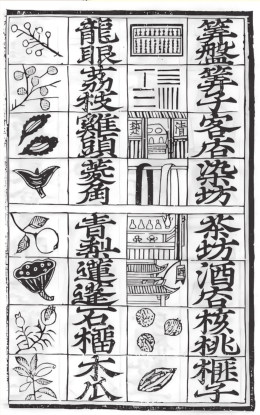 算盤等子客店染坊
茶坊酒店核桃榧子
龍眼荔枝雞頭菱角
青梨蓮蓬石榴木瓜